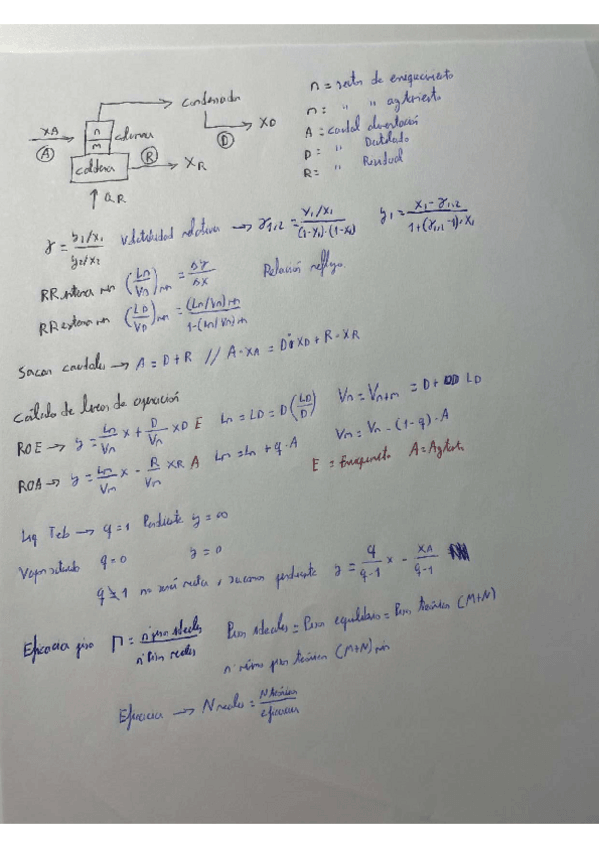 condensador
n = sector de enriquecimiento
XA
n
columna
XD
m = " " agotamiento
A
m
D
A = caudal alimentación
caldera
R
XR
D = " Destilado
QR
R = " Residual
γ = (y1/x1)/(y2/x2) Volatilidad relativa → γ1,2 = (y1/x1)/((1-y1)·(1-x1)) y1 = (x1-γ1,2)/(1+(γ1,2-1)·x1)
RR interna min (Ln/Vn)min = Δy/Δx Relación reflujo
RR externa min (LD/VD)min = (Ln/Vn)min/(1-(Ln/Vn)min)
Sacar caudales → A = D+R // A·XA = D·XD + R·XR
Cálculo de líneas de operación
ROE → y = Ln/Vn x + D/Vn XD E Ln = LD = D(LD/D) Vn = Vn+m = D+ LD
ROA → y = Lm/Vm x - R/Vm XR A Lm = Ln + q·A Vm = Vn - (1-q)·A
E = Enriquecimiento A = Agotam
Liq Teb → q=1 Pendiente y = ∞
Vapor saturado q=0 y = 0
q ≠ 1 no será recta, sacamos pendiente y = q/(q-1) x - XA/(q-1)
Eficacia piso η = nº pisos ideales/nº Pisos reales Pisos Ideales = Pisos equilibrio = Pisos teóricos (M+N)
nº mínimo pisos teóricos (M+N)min
Eficacia → N reales = N teóricos/eficacia